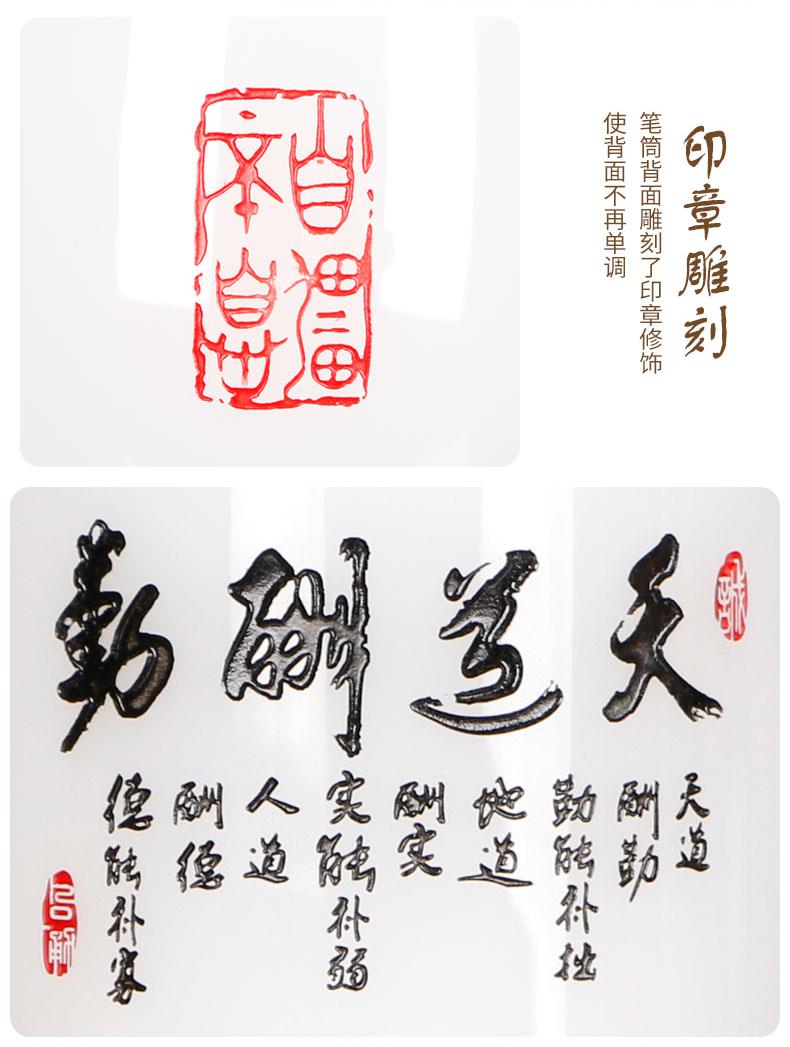 印章雕刻
笔筒背面雕刻了印章修饰
使背面不再单调
自彊
不息
誠
天道酬勤
天道
酬勤
勤能补拙
地道
酬实
实能补弱
人道
酬德
德能补寡